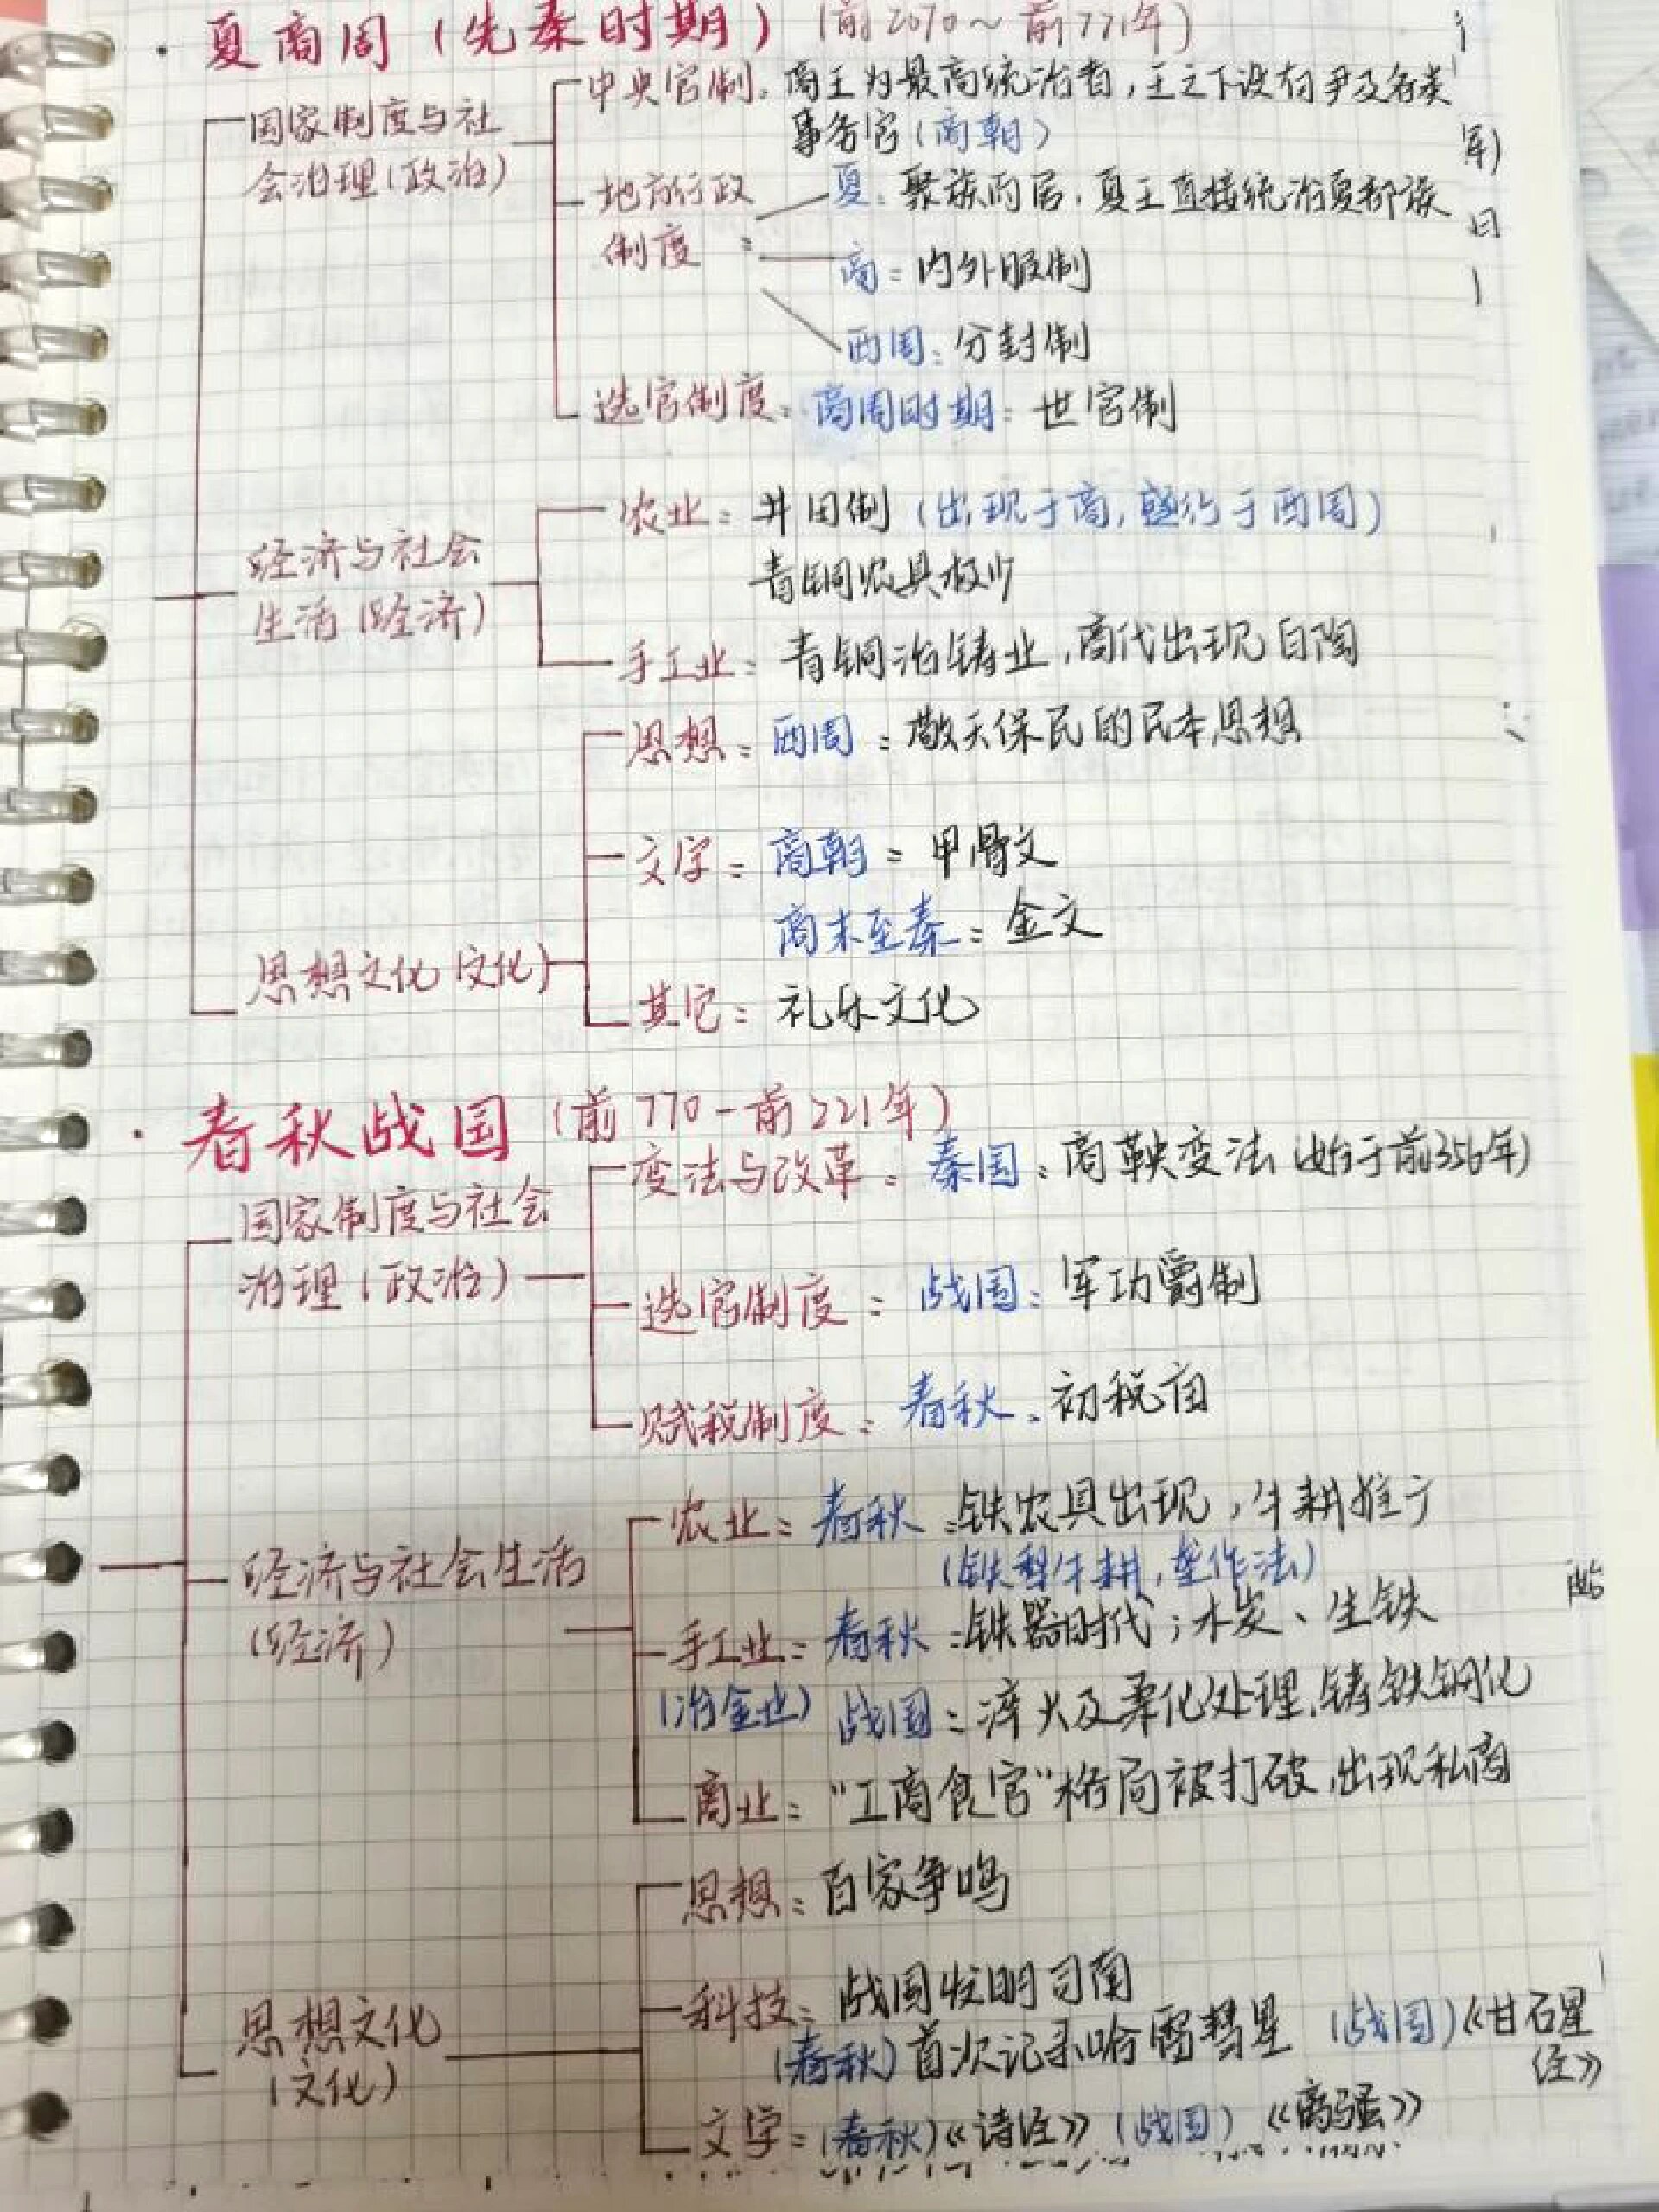 · 夏商周（先秦时期）（前2070～前771年）
国家制度与社
会治理（政治）
中央官制：商王为最高统治者，王之下设有尹及各类
事务官（商朝）
地方行政
制度：
夏：聚族而居，夏王直接统治夏部族
商：内外服制
西周：分封制
选官制度：商周时期：世官制
经济与社会
生活（经济）
农业：井田制（出现于商，盛行于西周）
青铜农具极少
手工业：青铜冶铸业，商代出现白陶
思想文化（文化）
思想：西周：敬天保民的民本思想
文字：商朝：甲骨文
商末至秦：金文
其它：礼乐文化
· 春秋战国（前770-前221年）
国家制度与社会
治理（政治）
变法与改革：秦国：商鞅变法（始于前356年）
选官制度：战国：军功爵制
赋税制度：春秋：初税亩
经济与社会生活
（经济）
农业：春秋：铁农具出现，牛耕推广
（铁犁牛耕，垄作法）
手工业：春秋：铁器时代；木炭、生铁
（冶金业）战国：淬火及柔化处理，铸铁钢化
商业："工商食官"格局被打破，出现私商
思想文化
（文化）
思想：百家争鸣
科技：战国发明司南
（春秋）首次记录哈雷彗星（战国）《甘石星
经》
文学：（春秋）《诗经》（战国）《离骚》